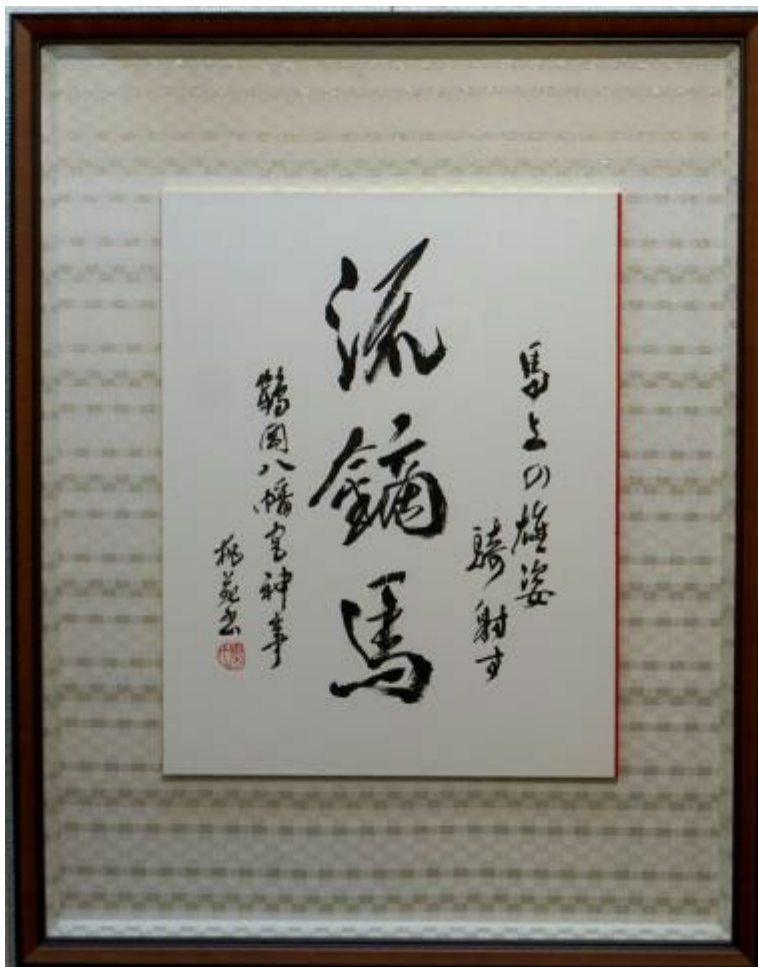 馬上の雄姿
騎射す
流鏑馬
鶴岡八幡宮神事
桃苑書